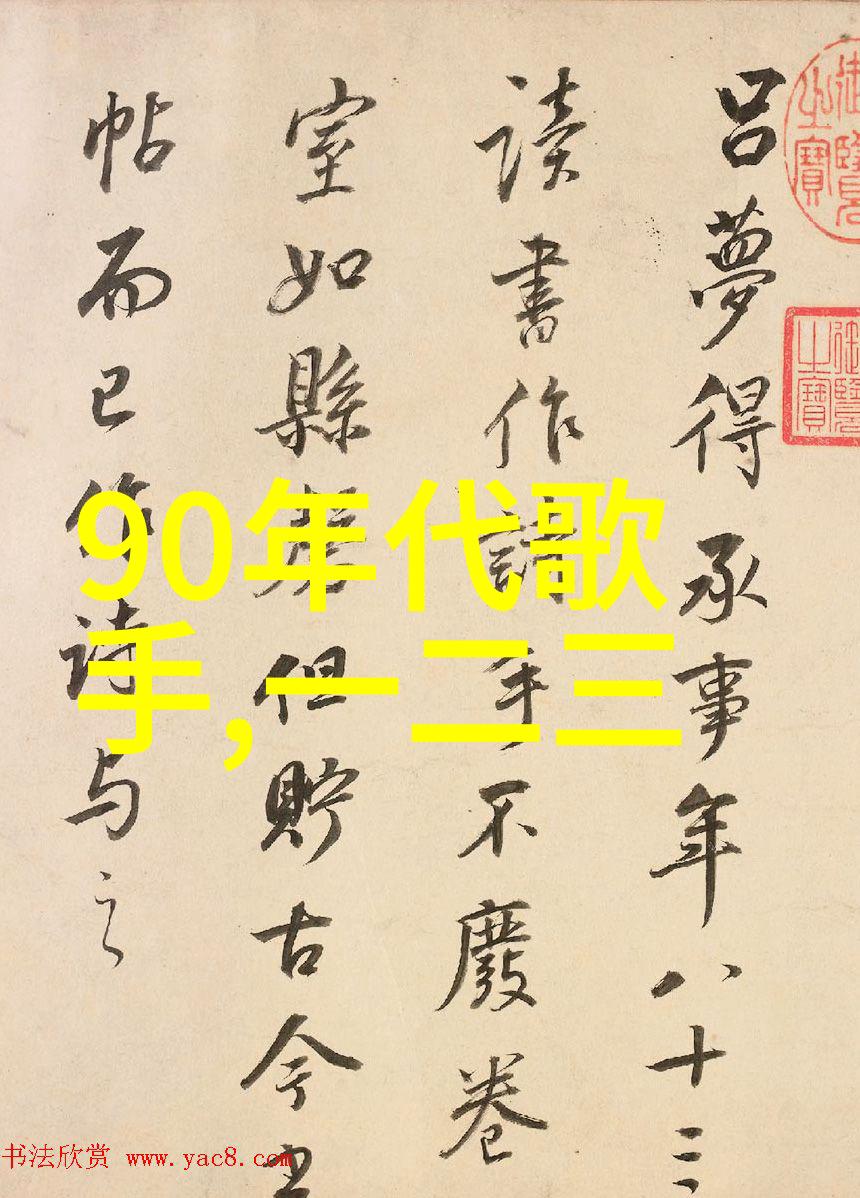 吕夢得承事年八十三
读書作詩手不廢卷
室如縣罄但貯古今
帖而已作诗与之
御覽之寶
90年代歌
手,一二三
书法欣赏 www.yac8.com